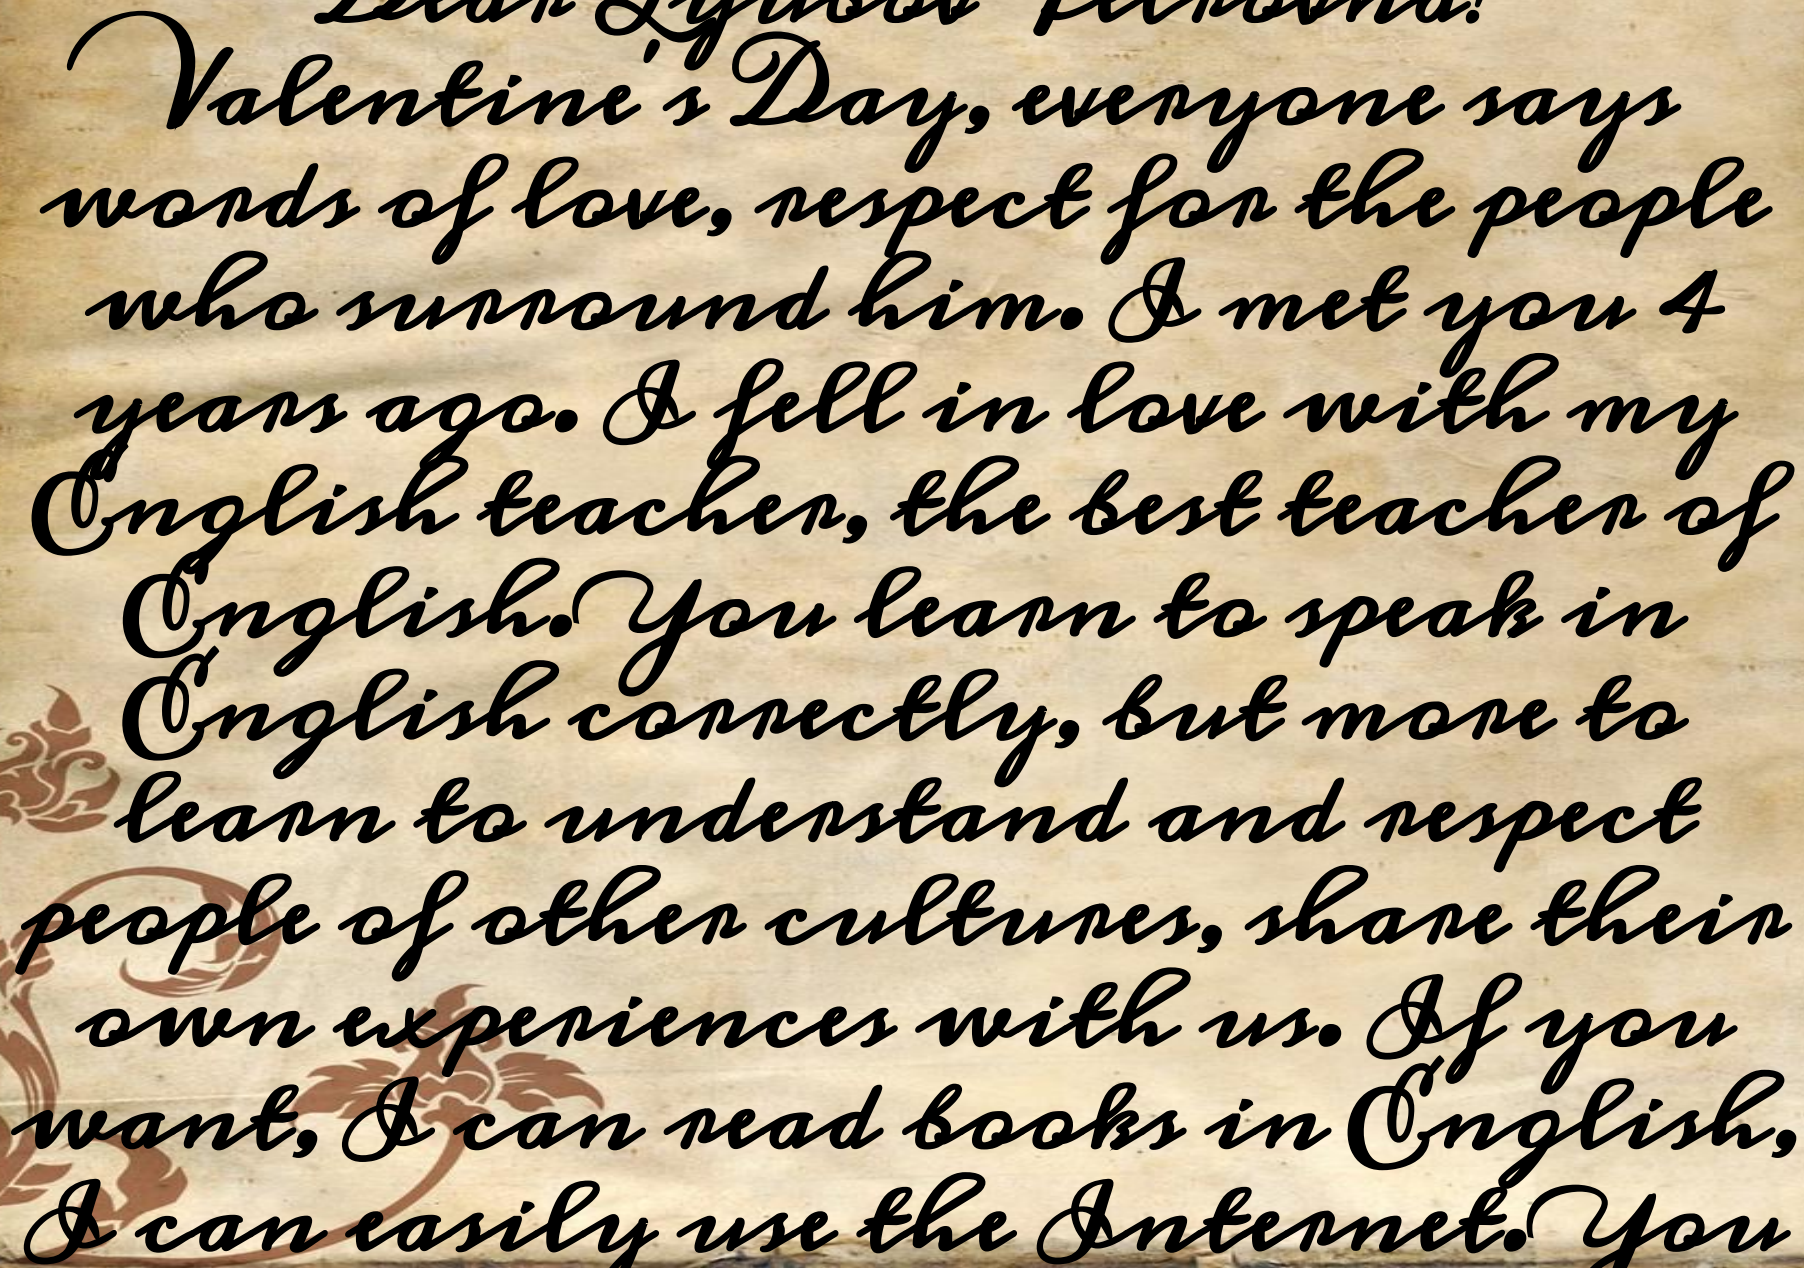 Dear Lyubov Petrovna!
Valentine's Day, everyone says
words of love, respect for the people
who surround him. I met you 4
years ago. I fell in love with my
English teacher, the best teacher of
English. You learn to speak in
English correctly, but more to
learn to understand and respect
people of other cultures, share their
own experiences with us. If you
want, I can read books in English,
I can easily use the Internet. You